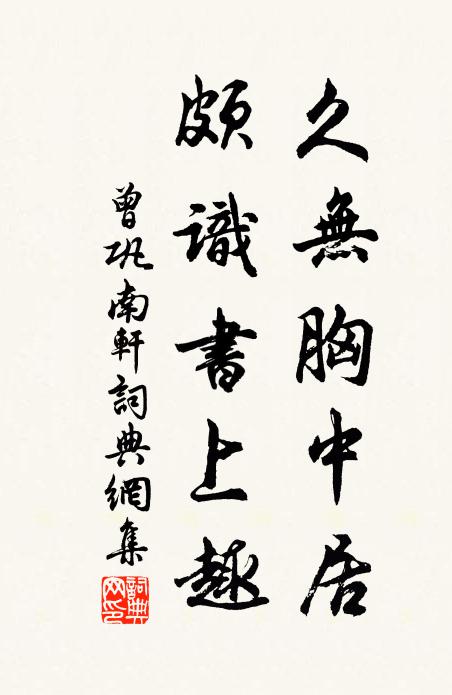 久無胸中居
頗識書上趣
曾巩南軒詞典網集
詞典網印